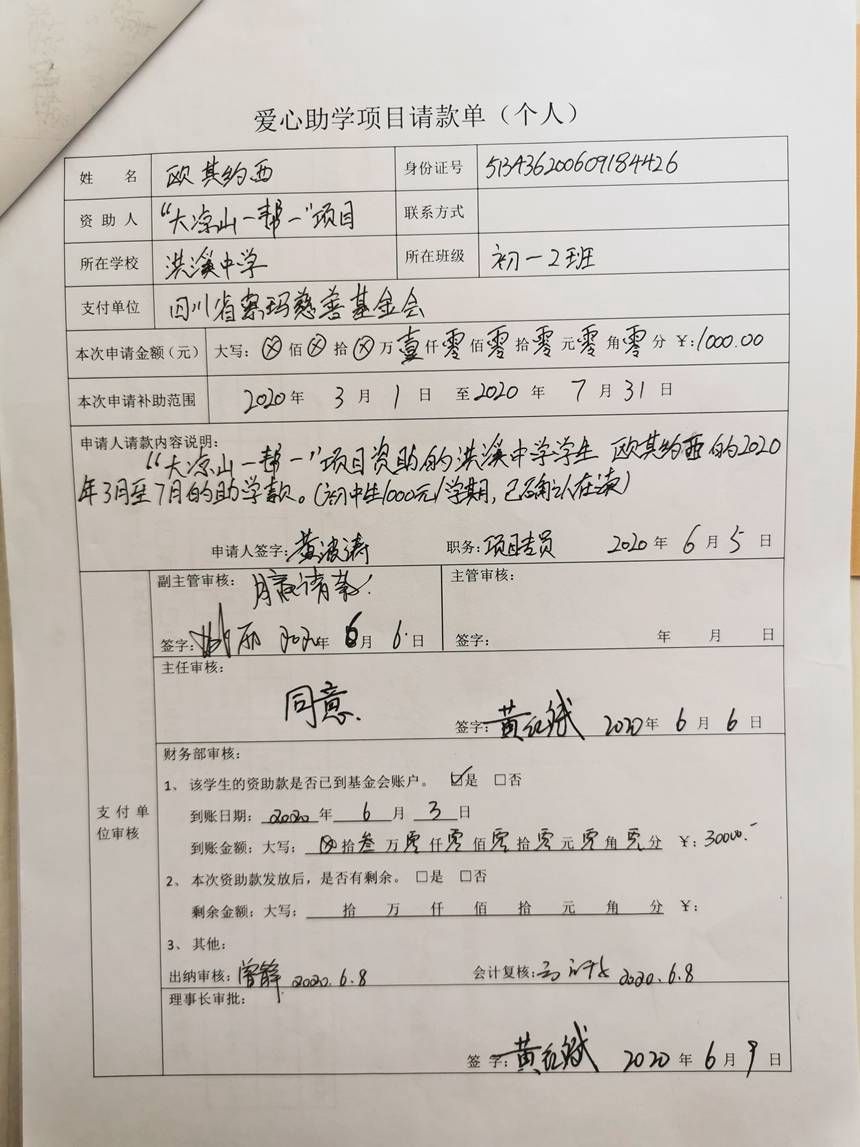 爱心助学项目请款单（个人）
姓 名 欧其约西 身份证号 513436200609184426
资助人 “大凉山一帮一”项目 联系方式
所在学校 洪溪中学 所在班级 初一2班
支付单位 四川省索玛慈善基金会
本次申请金额（元） 大写： ⊗ 佰 ⊗ 拾 ⊗ 万 壹 仟 零 佰 零 拾 零 元 零 角 零 分 ￥：1000.00
本次申请补助范围 2020 年 3 月 1 日 至 2020 年 7 月 31 日
申请人请款内容说明：
“大凉山一帮一”项目资助的洪溪中学学生 欧其约西的2020
年3月至7月的助学款。(初中生1000元/学期，已确认在读)
申请人签字：黄波涛 职务：项目专员 2020 年 6 月 5 日
副主管审核： 主管审核：
签字： 丽 2020年 6月 6.日 签字： 年 月 日
主任审核：
同意.
签字：黄红斌 2020年 6 月 6 日
支付单位审核
财务部审核：
1、 该学生的资助款是否已到基金会账户。 ☑是 □否
到账日期： 2020 年 6 月 3 日
到账金额：大写： ⊗ 拾 叁 万 零 仟 零 佰 零 拾 零 元 零 角 零 分 ￥：30000.-
2、 本次资助款发放后，是否有剩余。 □是 □否
剩余金额：大写： 拾 万 仟 佰 拾 元 角 分 ￥：
3、 其他：
出纳审核：曾静 2020.6.8 会计复核： 2020.6.8
理事长审批：
签 字：黄红斌 2020 年 6 月 9 日